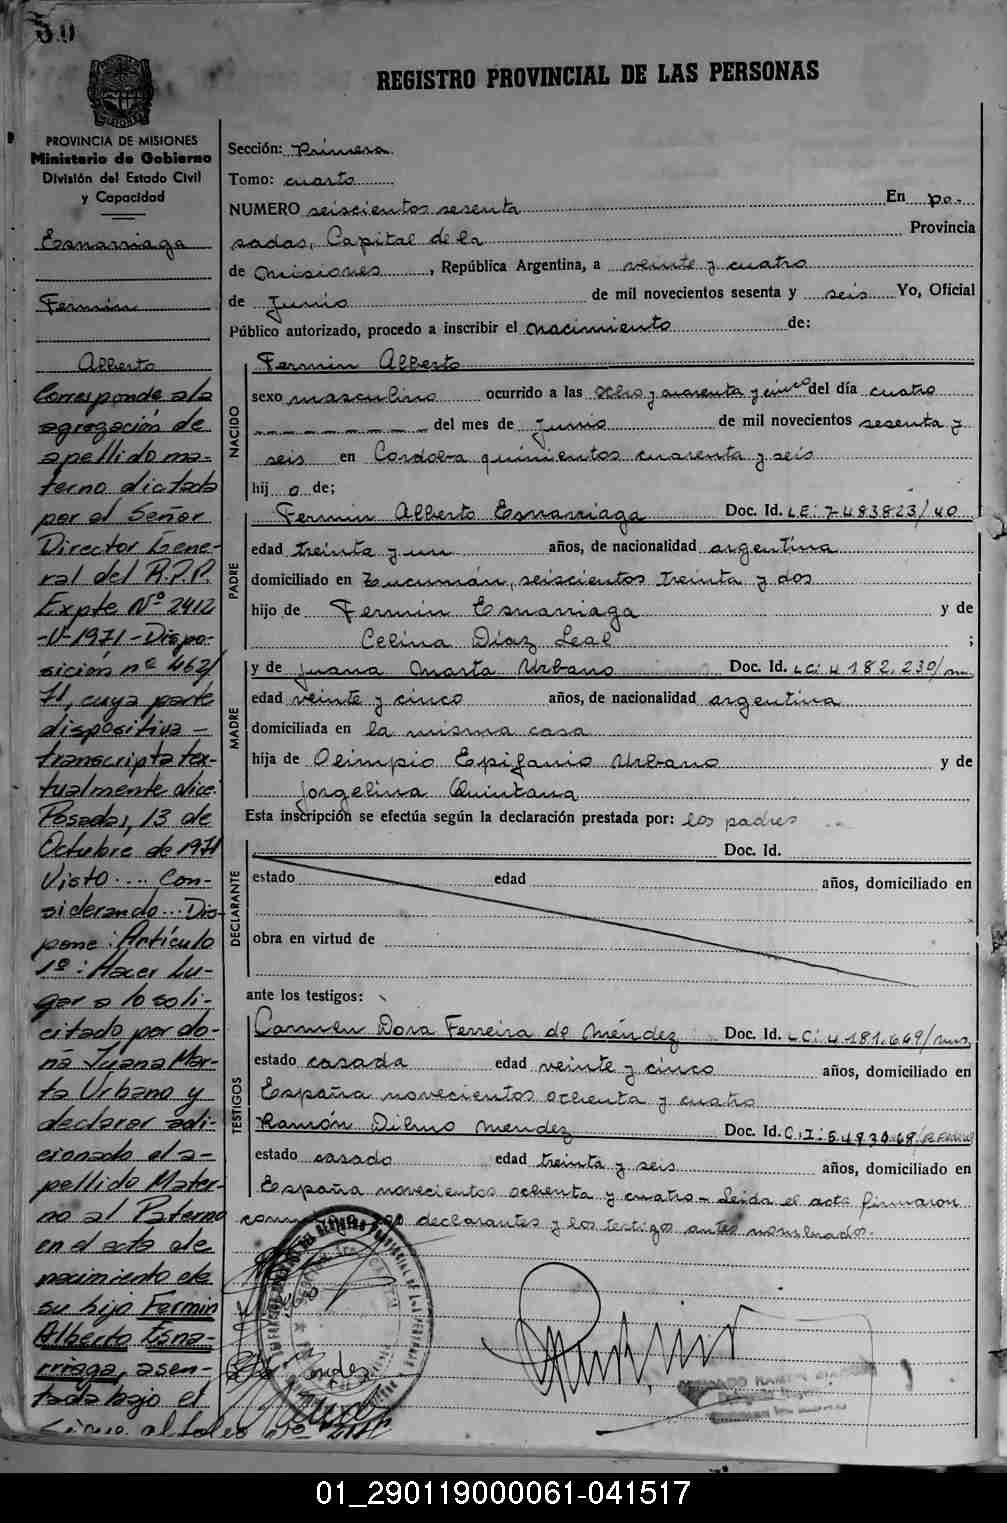 30
REGISTRO PROVINCIAL DE LAS PERSONAS
PROVINCIA DE MISIONES
Ministerio de Gobierno
División del Estado Civil
y Capacidad
Esnarriaga
Fermin
Alberto
Corresponde a la
agregación de
apellido ma-
terno dictada
por el Señor
Director Gene-
ral del R.P.P.
Expte Nº 2412
-U-1971-Dispo-
sición nº 462/
71, cuya parte
dispositiva -
transcripta tex-
tualmente dice:
Posadas, 13 de
Octubre de 1971
Visto .... Con-
siderando... Dis-
pone: Artículo
1º: Hacer Lu-
gar a lo soli-
citado por do-
ña Juana Mar-
ta Urbano y
declarar adi-
cionado el a-
pellido Mater-
no al Paterno
en el acta de
nacimiento de
su hijo Fermin
Alberto Esna-
rriaga, asen-
tada bajo el
Sigue al folio nº
Sección: Primera
Tomo: cuarto
NUMERO seiscientos sesenta En Po-
sadas, Capital de la Provincia
de Misiones, República Argentina, a veinte y cuatro
de Junio de mil novecientos sesenta y seis Yo, Oficial
Público autorizado, procedo a inscribir el nacimiento de:
NACIDO
Fermin Alberto
sexo masculino ocurrido a las ocho y cuarenta y cinco del día cuatro
del mes de Junio de mil novecientos sesenta y
seis en Cordoba quinientos cuarenta y seis
hij o de;
PADRE
Fermin Alberto Esnarriaga Doc. Id. LE: 7483823/40
edad treinta y un años, de nacionalidad argentina
domiciliado en Tucumán, seiscientos treinta y dos
hijo de Fermin Esnarriaga y de
Celina Díaz Leal ;
MADRE
y de Juana Marta Urbano Doc. Id. LC: 4.182.230/
edad veinte y cinco años, de nacionalidad argentina
domiciliada en la misma casa
hija de Olimpio Epifanio Urbano y de
Jorgelina Quintana
Esta inscripción se efectúa según la declaración prestada por: los padres
DECLARANTE
Doc. Id.
estado edad años, domiciliado en
obra en virtud de
ante los testigos:
TESTIGOS
Carmen Dora Ferreira de Méndez Doc. Id. LC: 4.181.649/
estado casada edad veinte y cinco años, domiciliado en
España novecientos ochenta y cuatro
Ramón Dilmo Mendez Doc. Id. C.I:
estado casado edad treinta y seis años, domiciliado en
España novecientos ochenta y cuatro - Leida el acta firmaron
declarantes y los testigos antes nombrados.
01_290119000061-041517